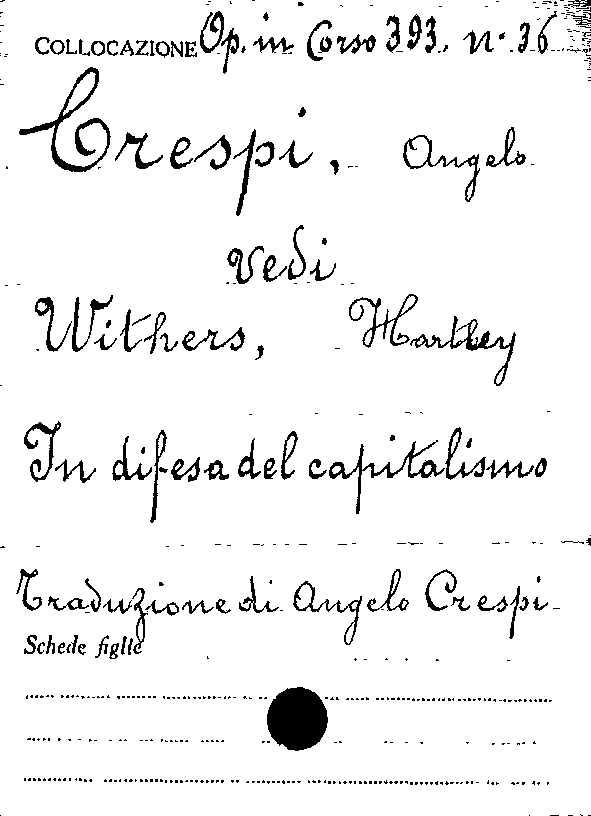 COLLOCAZIONE Op. in Corso 393. n. 36
Crespi, Angelo
vedi
Withers, Hartley
In difesa del capitalismo
Traduzione di Angelo Crespi
Schede figlie